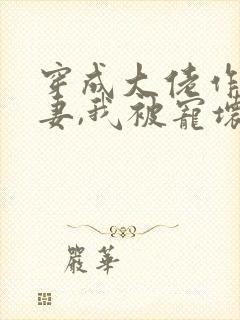 穿成大佬作
妻,我被寵壞
嚴華